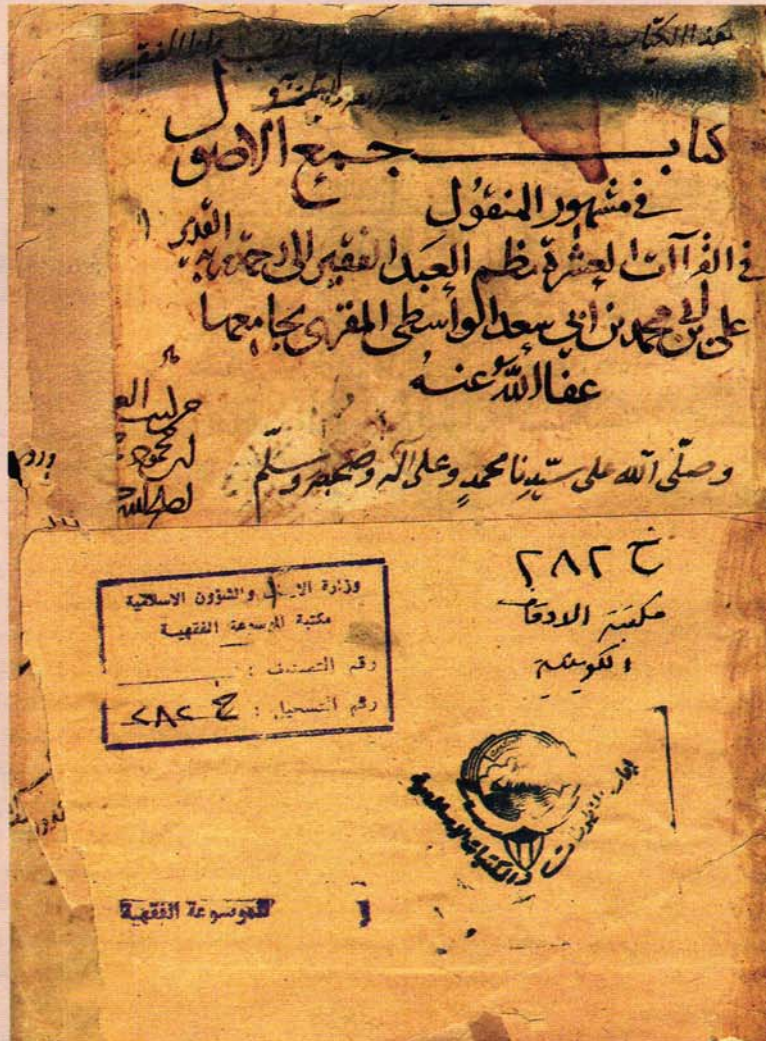 هذا الكتاب
كتاب جمع الاصول
في مشهور المنقول
في القراآت العشرة نظم العبد الفقير الى رحمة ربه القدير
علي بن ابي محمد بن ابي سعد الواسطي المقرى بجامعها
عفا الله عنه
وصلى الله على سيدنا محمد وعلى آله وصحبه وسلم
خ ٢٨٢
مكتبة الاوقاف
الكويتية
وزارة الاوقاف والشؤون الاسلامية
مكتبة الموسوعة الفقهية
رقم التصنيف :
رقم التسجيل : خ ٢٨٢
إدارة المخطوطات والمكتبات الإسلامية
الموسوعة الفقهية